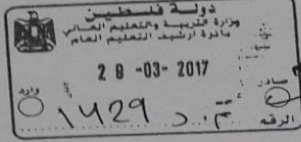 دولة فلسطين
وزارة التربية والتعليم العالي
دائرة ارشيف التعليم العام
29 -03- 2017
صادر
وارد
1429
الرقم